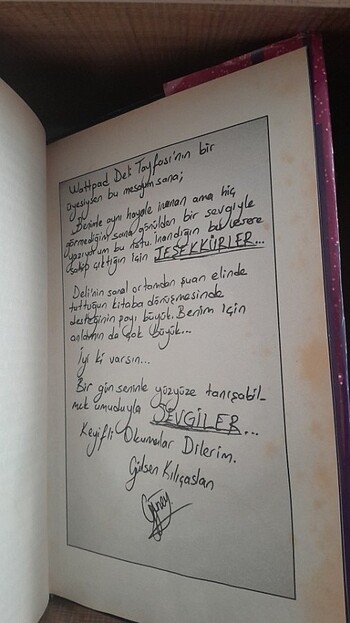 Wattpad Deli Tayfası'nın bir
üyesiysen bu mesajım sana;
Benimle aynı hayale inanan ama hiç
görmediğim sana gönülden bir sevgiyle
yazıyorum bu notu. İnandığın bu esere
sahip çıktığın için TEŞEKKÜRLER...
Deli'nin sanal ortamdan şuan elinde
tuttuğun kitaba dönüşmesinde
desteğinin payı büyük. Benim için
anlamın da çok büyük...
İyi ki varsın...
Bir gün seninle yüzyüze tanışabil-
mek umuduyla SEVGİLER...
Keyifli Okumalar Dilerim.
Gülsen Kılıçaslan